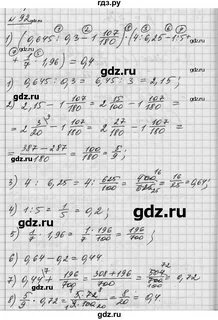 № 92
1) (0,645 : 0,3 - 1 107/180) · (4 : 6,25 - 1 : 5 +
+ 1/7 · 1,96) = 0,4
1) 0,645 : 0,3 = 6,45 : 3 = 2,15;
2) 2,15 - 1 107/180 = 2 15/100 - 1 107/180 =
= 2 3/20 - 1 107/180 = 2 27/180 - 1 107/180 =
= 387 - 287/180 = 100/180 = 5/9;
3) 4 : 6,25 = 4 : 625/100 = 400/625 = 16/25 = 0,64;
4) 1 : 5 = 1/5 = 0,2;
5) 1/7 · 1,96 = 1/7 · 196/100 = 196/700;
6) 0,64 - 0,2 = 0,44
7) 0,44 + 196/700 = 308 + 196/700 = 504/700 = 0,72
8) 5/9 · 0,72 = 5 · 72/9 · 100 = 8/20 = 0,4.
gdz.ru
gdz.ru
gdz.ru
gdz.ru
gdz.ru
gdz.ru